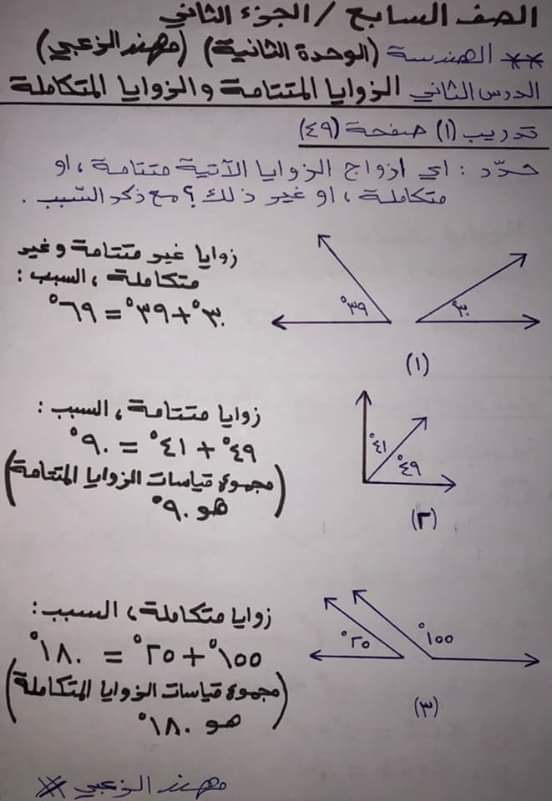 الصف السابع / الجزء الثاني
** الهندسة (الوحدة الثانية) (مهند الزعبي)
الدرس الثاني الزوايا المتتامة والزوايا المتكاملة
تدريب (١) صفحة (٤٩)
حدّد : اي ازواج الزوايا الآتية متتامة ، او
متكاملة ، او غير ذلك ؟ مع ذكر السّبب .
زوايا غير متتامة وغير
متكاملة ، السبب :
٣٠° + ٣٩° = ٦٩°
٣٩°
٣٠°
(١)
زوايا متتامة ، السبب :
٤٩° + ٤١° = ٩٠°
(مجموع قياسات الزوايا المتتامة
هو ٩٠°)
٤١°
٤٩°
(٢)
زوايا متكاملة ، السبب :
١٥٥° + ٢٥° = ١٨٠°
(مجموع قياسات الزوايا المتكاملة
هو ١٨٠°)
٢٥°
١٥٥°
(٣)
مهند الزعبي **